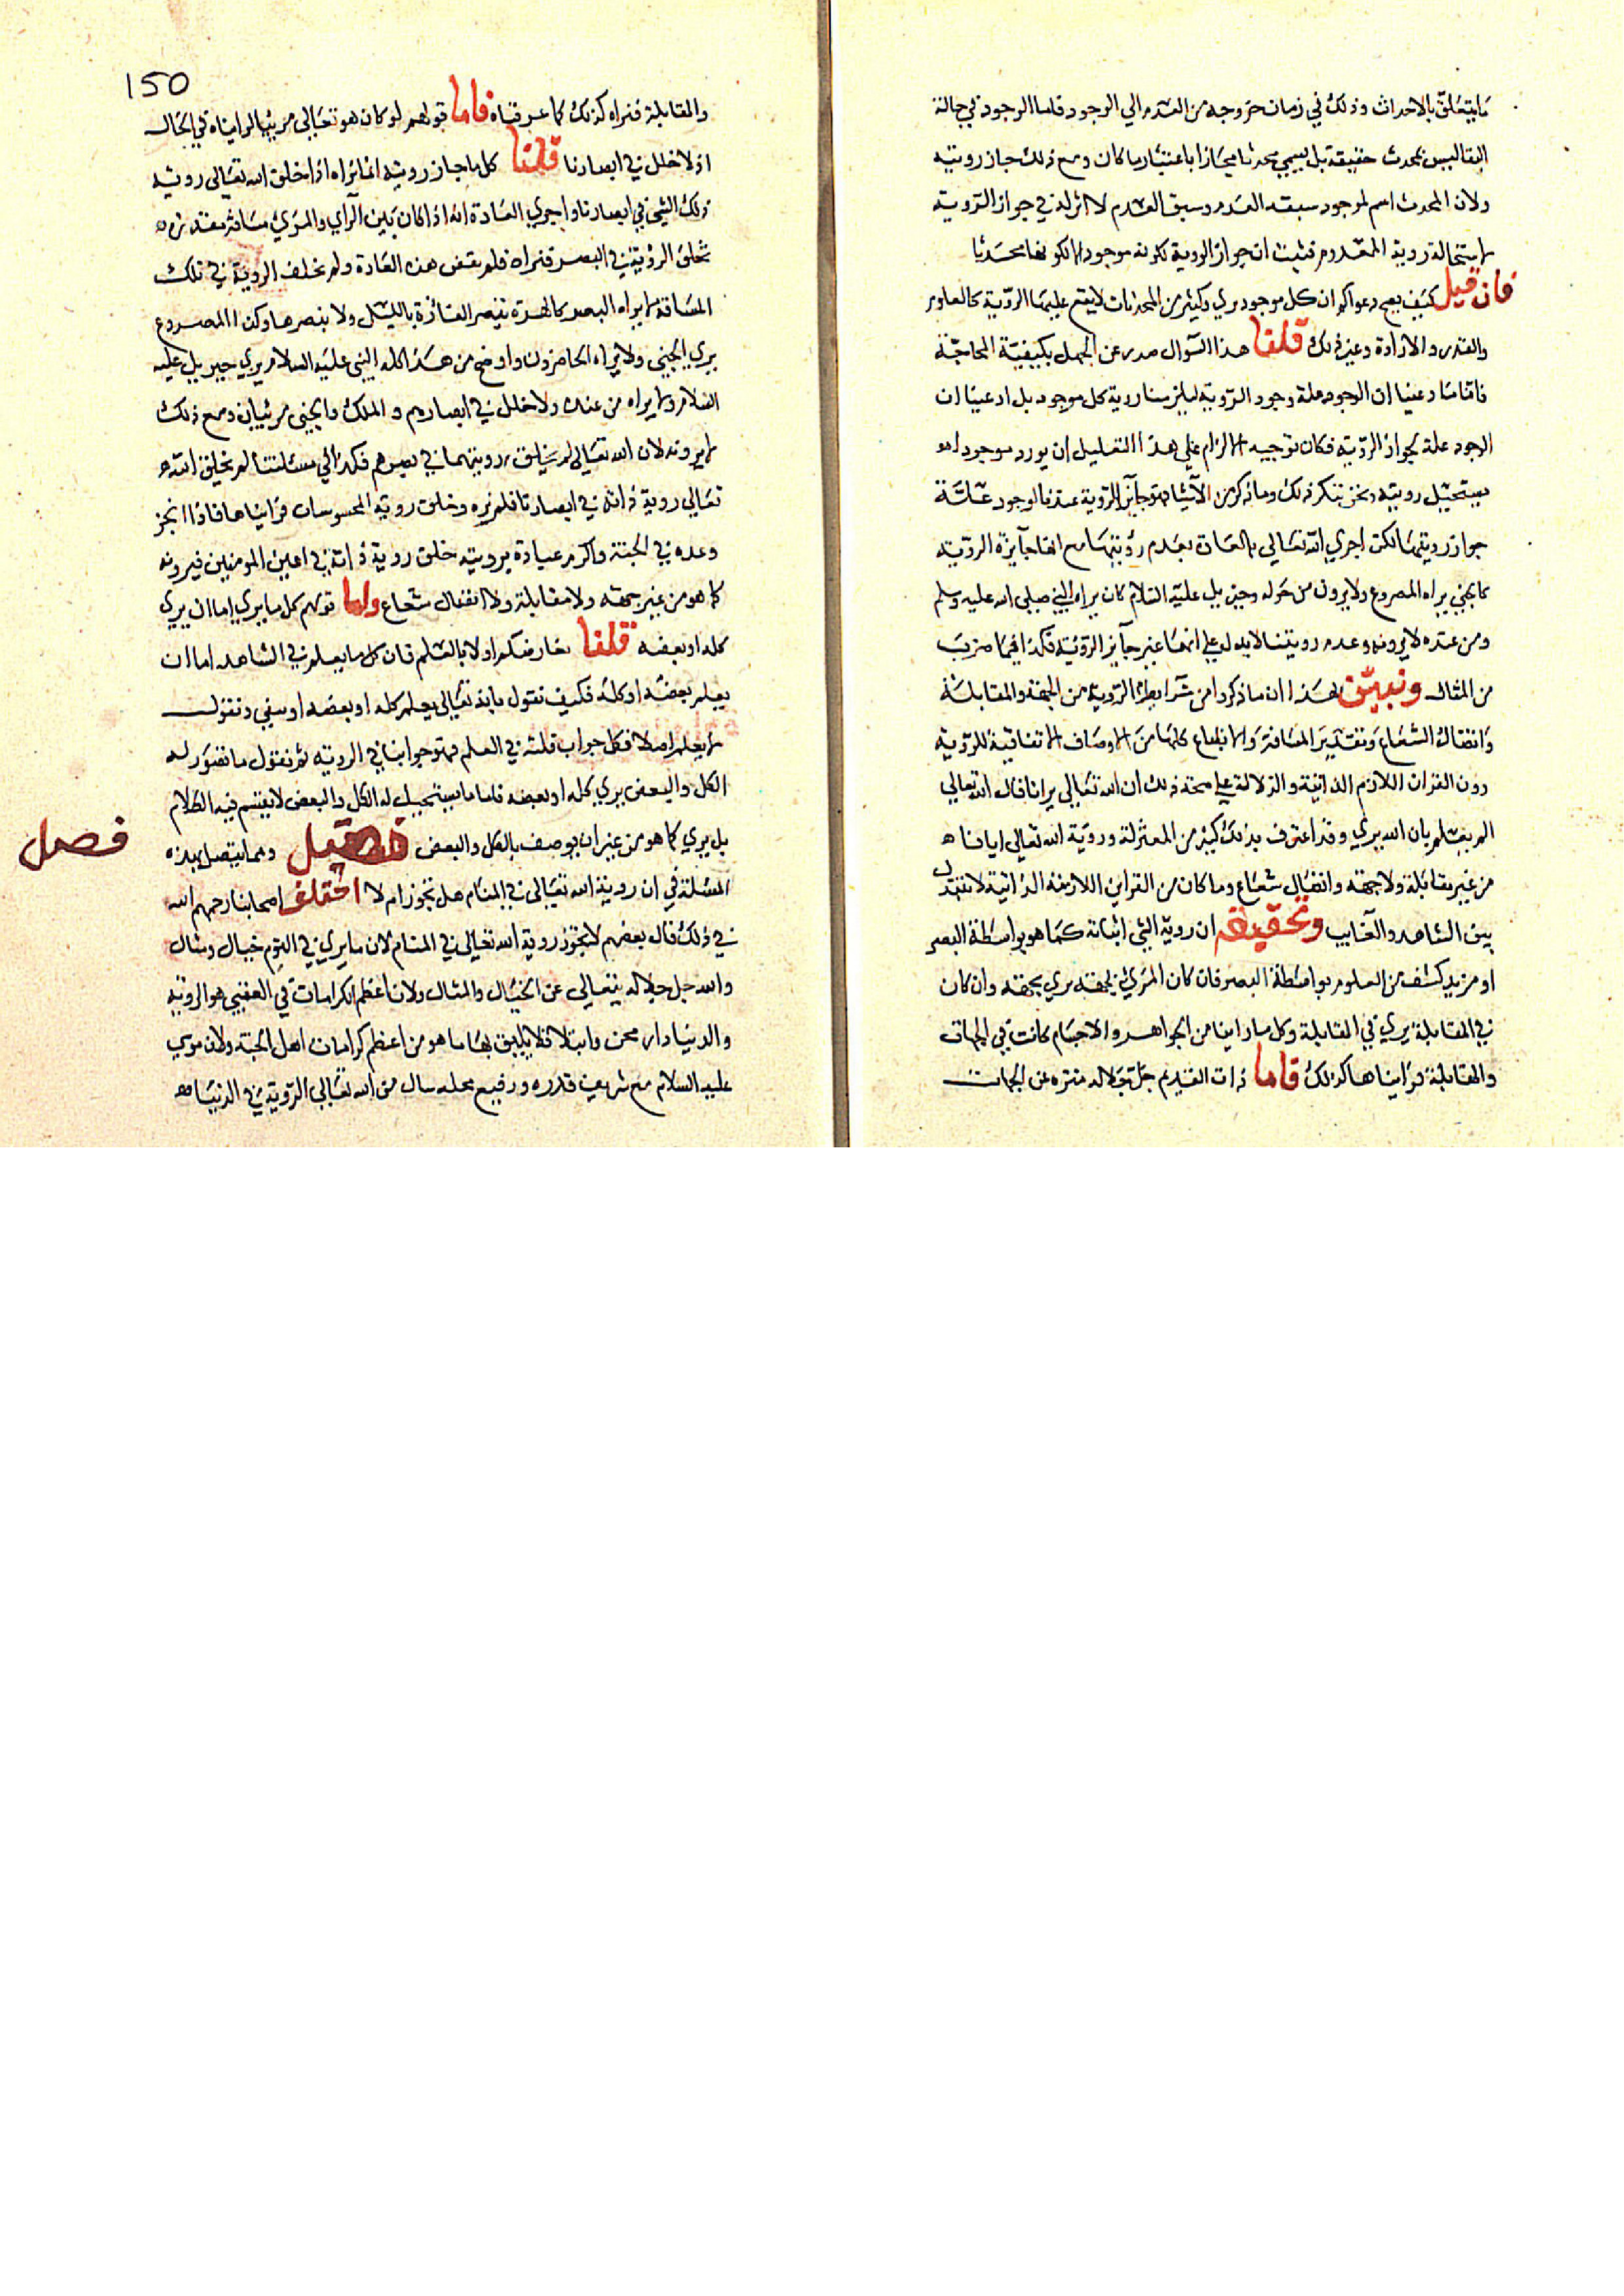 ما يتعلق بالاحداث وذلك في زمان خروجه من العدم الي الوجود فاما الوجود في حالة
البقا ليس بمحدث حقيقة بل يسمي محدثا مجازا باعتبار ما كان ومع ذلك جاز رويته
ولان المحدث اسم لموجود سبقه العدم وسبق العدم لا اثر له في جواز الروية
لاستحالة روية المعدوم فثبت ان جواز الروية لكونه موجودا لا لكونها محدثا
فان قيل كيف يصح دعواكم ان كل موجود يري وكثير من المحدثات لا يقع عليها الروية كالعلوم
والقدر والارادة وغير ذلك قلنا هذا السوال صدر عن الجهل بكيفية المحاجة
فاننا ما ادعينا ان الوجود علة وجود الروية ليلزمنا روية كل موجود بل ادعينا ان
الوجود علة لجواز الروية فكان توجيه الالزام علي هذا التعليل ان يورد موجودا هو
يستحيل رويته ونحن ننكر ذلك وما ذكر من الاشيا فهو جايز الروية عندنا لوجود علة
جواز رويتها لكن اجري الله تعالي العادة بعدم رؤيتها مع انها جايزة الروية
كالجني يراه المصروع ولا يرون من حوله وجبريل عليه السلام كان يراه النبي صلي الله عليه وسلم
ومن عنده لا يرونه وعدم رويتنا لا يدل علي انها غير جايز الروية فكذا فيما ضرب
من المثال ونبين لهذا ان ما ذكروا من شرايط الروية من الجهة والمقابلة
واتصال الشعاع وتقدير المسافة والانطباع كلها من الاوصاف الاتفاقية للروية
دون القران اللازم الذاتية والدلالة علي صحة ذلك ان الله تعالي يرانا قال الله تعالي
الم يعلم بان الله يري وقد اعترف بذلك كثير من المعتزلة وروية الله تعالي ايانا
من غير مقابلة ولا جهة واتصال شعاع وما كان من القراين اللازمة الذاتية لا تتبدل
بين الشاهد والغايب وتحقيقه ان روية الشي اثباته كما هو بواسطة البصر
او مزيد كشف من العلوم بواسطة البصر فان كان المرئي في جهة يري بجهة وان كان
في المقابلة يري في المقابلة وكل ما راينا من الجواهر والاجسام كانت في الجهات
والمقابلة فراينا ها كذلك فاما ذات القديم جل جلاله منزه عن الجهات
150
والمقابلة فنراه كذلك كما عرفناه فاما قولهم لو كان هو تعالي مرئيا لرايناه في الحال
اذ لا خلل في ابصارنا قلنا كل ما جاز رويته انما نراه اذا خلق الله تعالي روية
ذلك الشي في ابصارنا واجري العادة انه اذا كان بين الراي والمرئي مسافة مقدرة
تخلق الرؤية في البصر فنراه فلم تقض هذه العادة ولم تخلف الروية في تلك
المسافة لا يراه البصر كالهرة تبصر الفارة بالليل ولا نبصرها وكذا المصروع
يري الجني ولا يراه الحاضرون واوضح من هذا كله النبي عليه السلام يري جبريل عليه
السلام ولا يراه من عنده ولا خلل في ابصارهم و الملك والجني مرئيان ومع ذلك
لا يرونه لان الله تعالي لم يخلق رويتهما في بصرهم فكذا في مسئلتنا لم يخلق الله
تعالي روية ذاته في ابصارنا فلم نره وخلق روية المحسوسات فراينا ها فاذا انجز
وعده في الجنة واكرم عباده برويته خلق روية ذاته في اعين المومنين فيرونه
كما هو من غير جهة ولا مقابلة ولا اتصال شعاع واما قولهم كل ما يري اما ان يري
كله او بعضه قلنا نعارضكم اولا بالعلم فان كل ما يعلم في الشاهد اما ان
يعلم بعضه او كله فكيف نقول بانه تعالي يعلم كله او بعضه او سفي ونقول
لا يعلم اصلا فكل جواب قلته في العلم فهو جوابنا في الروية ثم نقول ما تصور له
الكل والبعض يري كله او بعضه فاما ما يستحيل له الكل والبعض لا ينقسم فيه الكلام
بل يري كما هو من غير ان يوصف بالكل والبعض فصل ومما يتصل بهذه
فصل
المسئلة في ان روية الله تعالي في المنام هل تجوز ام لا اختلف اصحابنا رحمهم الله
في ذلك قال بعضهم لا يجوز روية الله تعالي في المنام لان ما يري في النوم خيال ومثال
والله جل جلاله يتعالي عن الخيال والمثال ولان اعظم الكرامات في العقبي هو الروية
والدنيا دار محن وابتلا فلا يليق بها ما هو من اعظم كرامات اهل الجنة ولان موسي
عليه السلام مع شريف قدره ورفيع محله سال من الله تعالي الروية في الدنيا